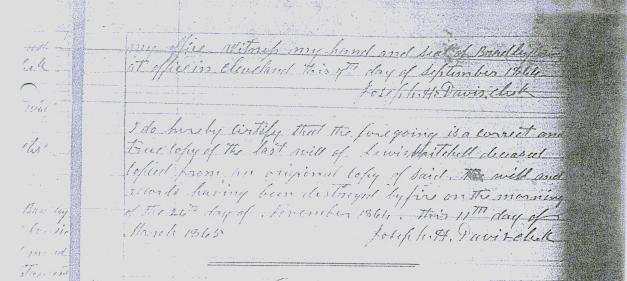 my office Witness my hand and seal of Bradley
at office in Cleveland this 9th day of September 1864
Joseph H. Davis, clk
I do hereby Certify that the foregoing is a correct and
true copy of the last will of Lewis Mitchell deceased
copied from an original copy of said. will and
records having been destroyed by fire on the morning
of the 26th day of November 1864. This 11th day of
March 1865 Joseph. H. Davis clk